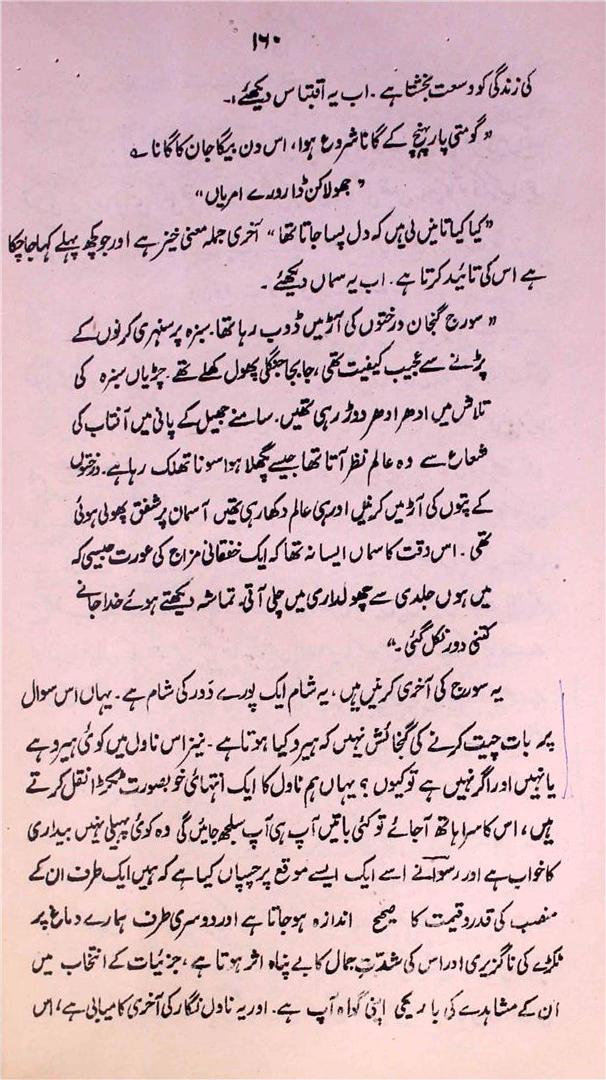 ۱۶۰
کی زندگی کو وسعت بخشتا ہے ۔ اب یہ اقتباس دیکھئے ،۔
”گومتی پار پہنچ کے گانا شروع ہوا، اس دن بیگا جان کا گانا ے
”جھولا کن ڈارو رے امریاں“
”کیا کیا تانیں لی ہیں کہ دل پسا جاتا تھا“ آخری جملہ معنی خیز ہے اور جو کچھ پہلے کہا جا چکا
ہے اس کی تائید کرتا ہے ۔ اب یہ سماں دیکھئے ۔
”سورج گنجان درختوں کی آڑ میں ڈوب رہا تھا۔ سبزہ پر سنہری کرنوں کے
پڑنے سے عجیب کیفیت تھی ، جا بجا جنگلی پھول کھلے تھے۔ چڑیاں سبزہ کی
تلاش میں ادھر ادھر دوڑ رہی تھیں۔ سامنے جھیل کے پانی میں آفتاب کی
شعاع سے وہ عالم نظر آتا تھا جیسے پگھلا ہوا سونا تھلک رہا ہے۔ درختوں
کے پتوں کی آڑ میں کرنیں اور ہی عالم دکھا رہی تھیں آسمان پر شفق پھولی ہوئی
تھی ۔ اس وقت کا سماں ایسا نہ تھا کہ ایک خفقانی مزاج کی عورت جیسی کہ
میں ہوں جلدی سے چھولداری میں چلی آتی۔ تماشہ دیکھتے ہوئے خدا جانے
کتنی دور نکل گئی ۔“
یہ سورج کی آخری کرنیں ہیں، یہ شام ایک پورے دَور کی شام ہے ۔ یہاں اس سوال
پر بات چیت کرنے کی گنجائش نہیں کہ ہیرو کیا ہوتا ہے ۔ نیز اس ناول میں کوئی ہیرو ہے
یا نہیں اور اگر نہیں ہے تو کیوں ؟ یہاں ہم ناول کا ایک انتہائی خوبصورت ٹکڑا نقل کرتے
ہیں ، اس کا سرا ہاتھ آ جائے تو کئی باتیں آپ ہی آپ سلجھ جائیں گی وہ کوئی پہیلی نہیں بیداری
کا خواب ہے اور رسوا نے اسے ایک ایسے موقع پر چسپاں کیا ہے کہ ہمیں ایک طرف ان کے
منصب کی قدر و قیمت کا صحیح اندازہ ہو جاتا ہے اور دوسری طرف ہمارے دماغ پر
ٹکڑے کی ناگزیری اور اس کی شدتِ جمال کا بے پناہ اثر ہوتا ہے ، جزئیات کے انتخاب میں
اُن کے مشاہدے کی باریکی اپنی گواہ آپ ہے ۔ اور یہ ناول نگار کی آخری کامیابی ہے، اس